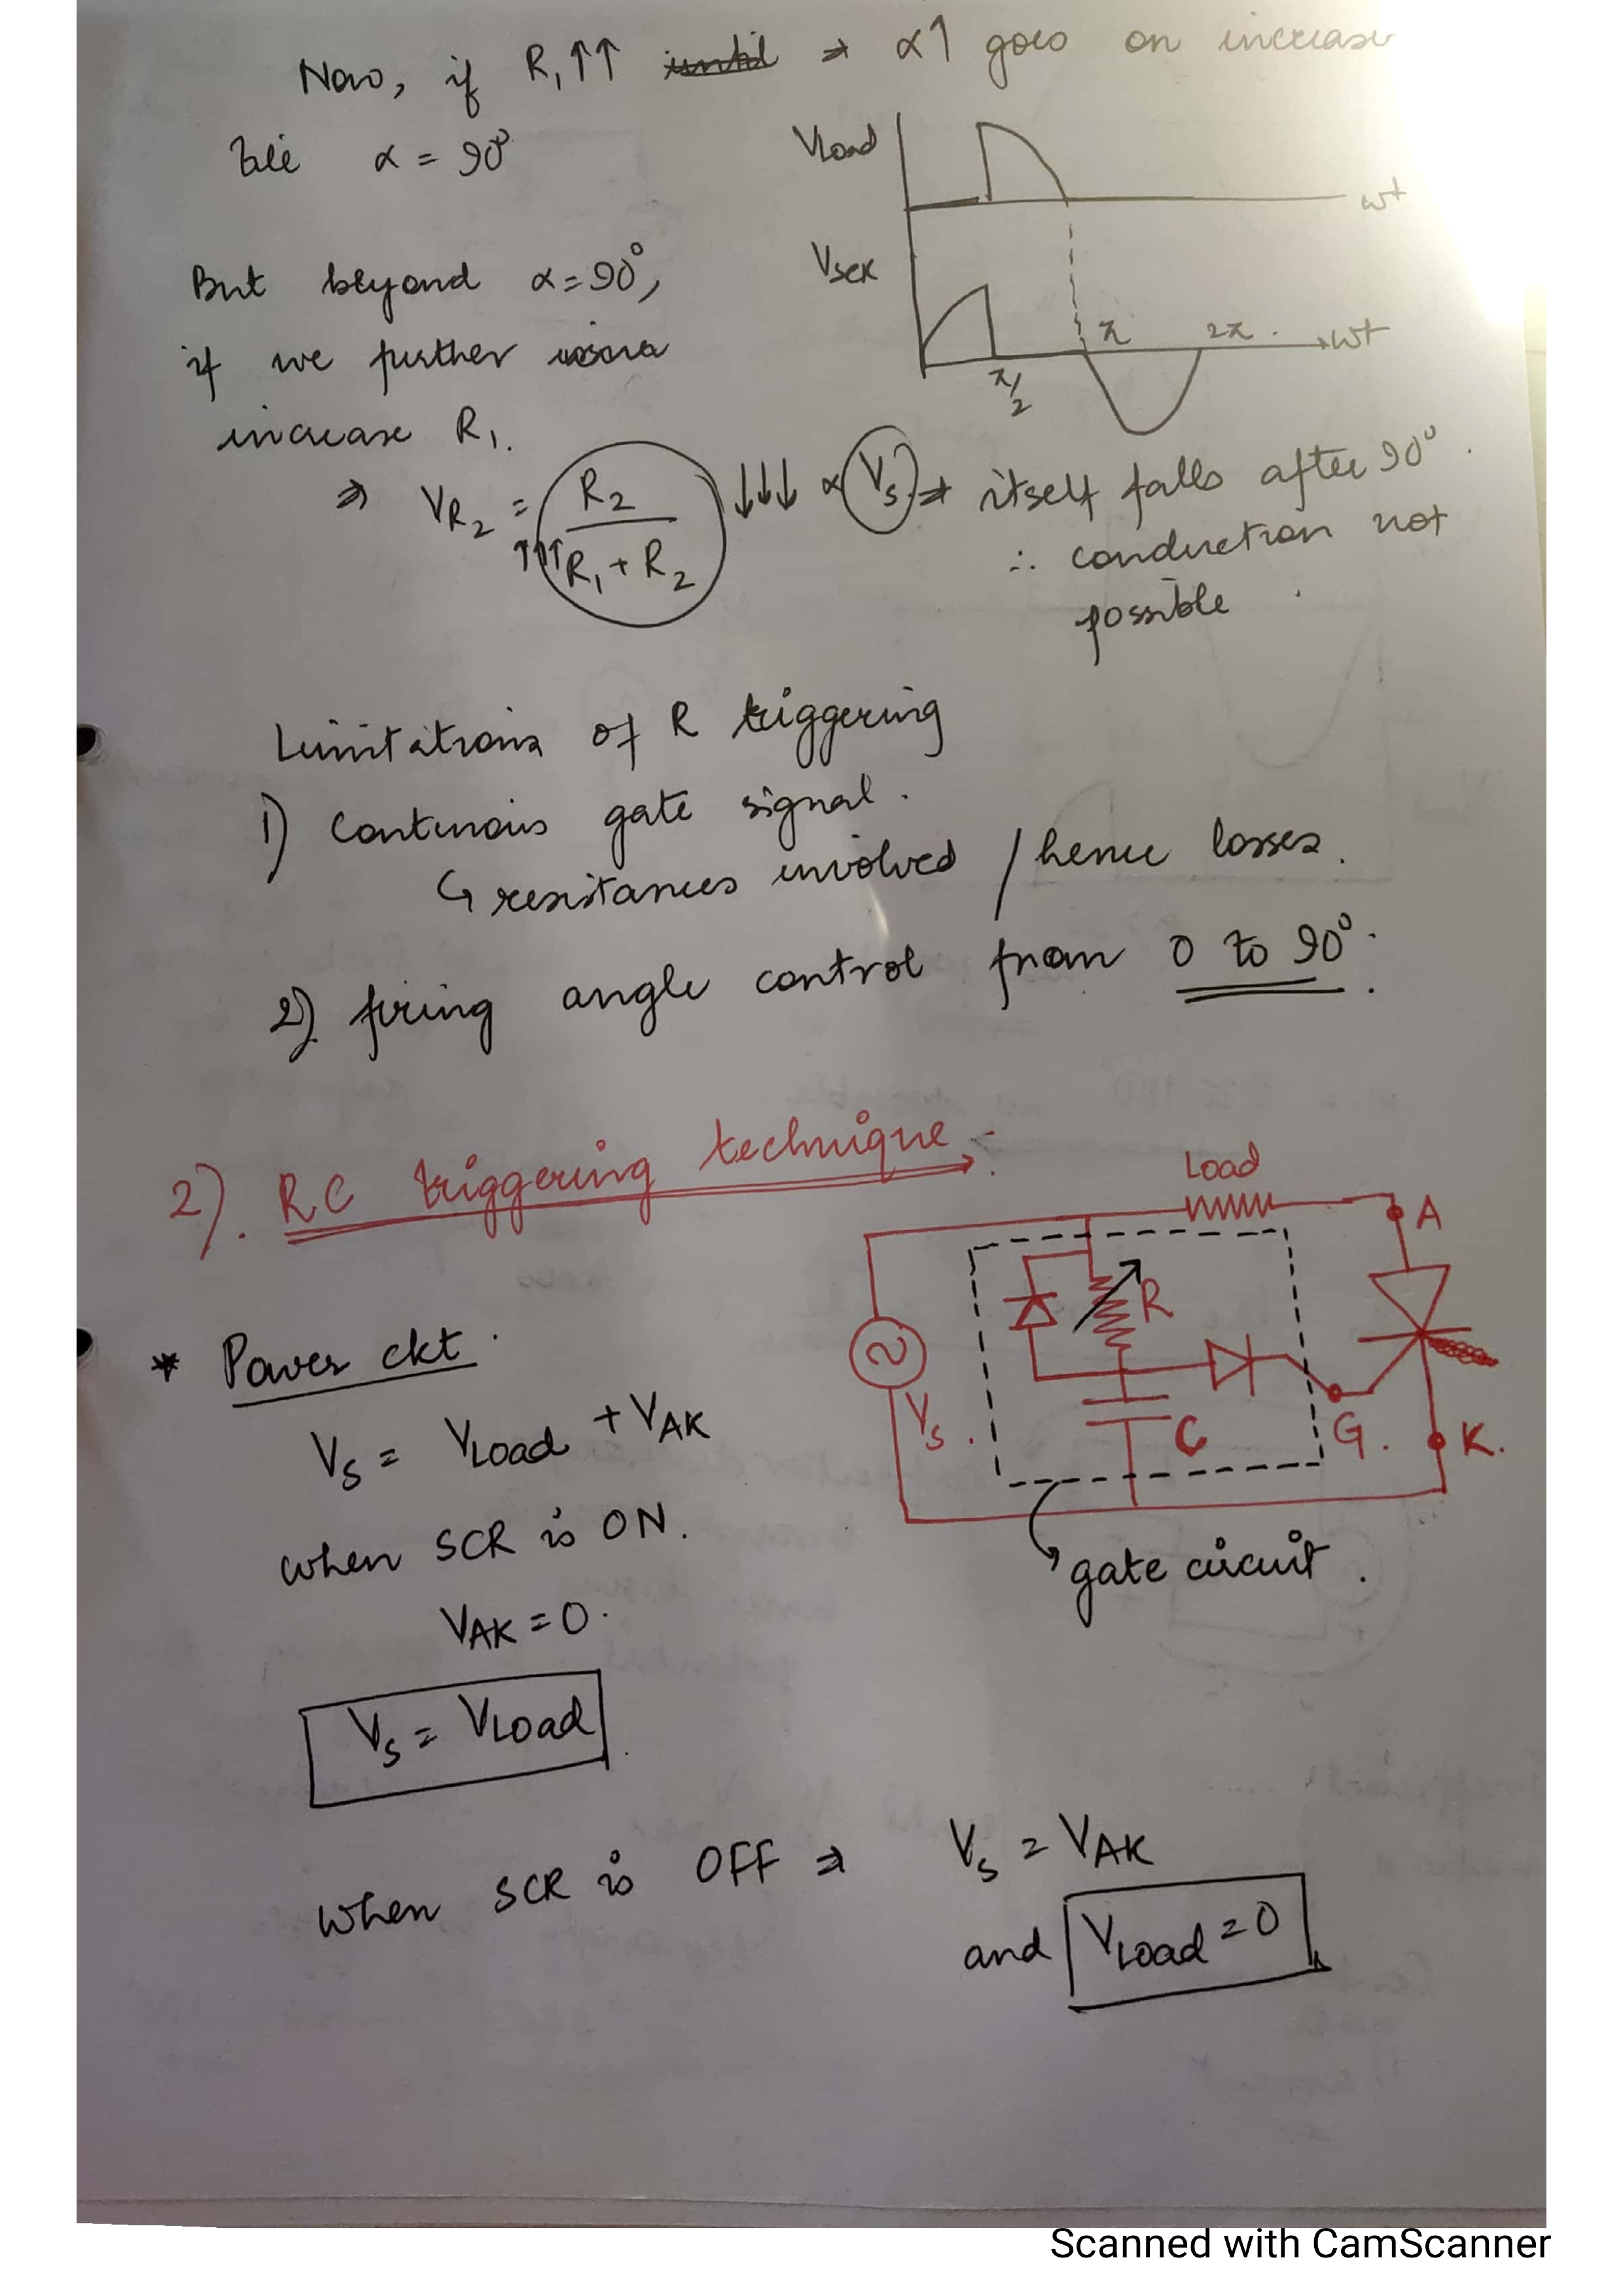 Now, if R₁↑↑ until ⇒ α↑ goes on increase
till α = 90°
VLoad
ωt
But beyond α=90°,
VSCR
π 2π . ωt
π/2
if we further
increase R₁.
⇒ VR₂ = R₂ / (R₁ + R₂) ↓↓↓ ∝ Vs ⇒ itself falls after 90°.
↑↑↑
∴ conduction not
possible .
Limitations of R triggering
1) Continous gate signal.
↳ resistances involved / hence losses.
2) firing angle control from 0 to 90°.
2). RC triggering technique :
Load
A
R
Vs .
C
G .
K.
gate circuit .
* Power ckt .
Vs = VLoad + VAK
when SCR is ON.
VAK = 0.
Vs = VLoad
When SCR is OFF ⇒ Vs = VAK
and VLoad = 0
Scanned with CamScanner